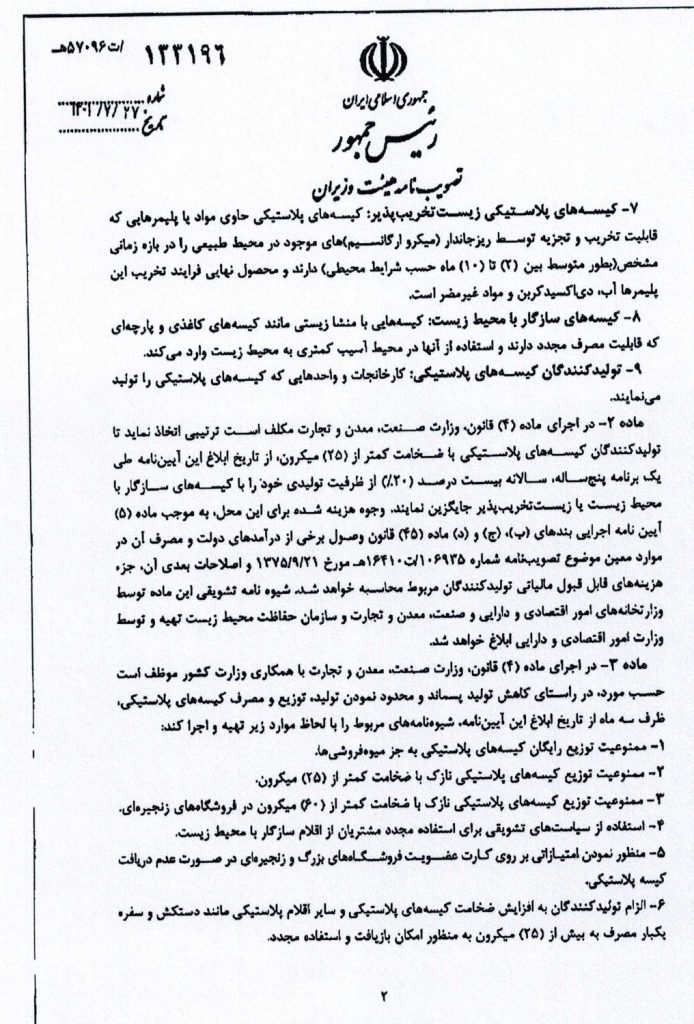 ۱۳۳۱۹۶ /ت۵۷۰۹۶هـ
جمهوری اسلامی ایران
شماره
رئیس جمهور
تاریخ ۱۴۰۱/۷/۲۷
تصویب نامه هیئت وزیران
۷- کیسه‌های پلاستیکی زیست‌تخریب‌پذیر: کیسه‌های پلاستیکی حاوی مواد یا پلیمرهایی که
قابلیت تخریب و تجزیه توسط ریزجاندار (میکرو ارگانسیم)های موجود در محیط طبیعی را در بازه زمانی
مشخص(بطور متوسط بین (۲) تا (۱۰) ماه حسب شرایط محیطی) دارند و محصول نهایی فرایند تخریب این
پلیمرها آب، دی‌اکسیدکربن و مواد غیرمضر است.
۸- کیسه‌های سازگار با محیط زیست: کیسه‌هایی با منشا زیستی مانند کیسه‌های کاغذی و پارچه‌ای
که قابلیت مصرف مجدد دارند و استفاده از آنها در محیط آسیب کمتری به محیط زیست وارد می‌کند.
۹- تولیدکنندگان کیسه‌های پلاستیکی: کارخانجات و واحدهایی که کیسه‌های پلاستیکی را تولید
می‌نمایند.
ماده ۲- در اجرای ماده (۴) قانون، وزارت صنعت، معدن و تجارت مکلف است ترتیبی اتخاذ نماید تا
تولیدکنندگان کیسه‌های پلاستیکی با ضخامت کمتر از (۲۵) میکرون، از تاریخ ابلاغ این آیین‌نامه طی
یک برنامه پنج‌ساله، سالانه بیست درصد (۲۰٪) از ظرفیت تولیدی خود را با کیسه‌های سازگار با
محیط زیست یا زیست‌تخریب‌پذیر جایگزین نمایند. وجوه هزینه شده برای این محل، به موجب ماده (۵)
آیین نامه اجرایی بندهای (ب)، (ج) و (د) ماده (۴۵) قانون وصول برخی از درآمدهای دولت و مصرف آن در
موارد معین موضوع تصویبنامه شماره ۱۰۶۹۳۵/ت۱۶۴۱۰هـ مورخ ۱۳۷۵/۹/۲۱ و اصلاحات بعدی آن، جزء
هزینه‌های قابل قبول مالیاتی تولیدکنندگان مربوط محاسبه خواهد شد. شیوه نامه تشویقی این ماده توسط
وزارتخانه‌های امور اقتصادی و دارایی و صنعت، معدن و تجارت و سازمان حفاظت محیط زیست تهیه و توسط
وزارت امور اقتصادی و دارایی ابلاغ خواهد شد.
ماده ۳- در اجرای ماده (۴) قانون، وزارت صنعت، معدن و تجارت با همکاری وزارت کشور موظف است
حسب مورد، در راستای کاهش تولید پسماند و محدود نمودن تولید، توزیع و مصرف کیسه‌های پلاستیکی،
ظرف سه ماه از تاریخ ابلاغ این آیین‌نامه، شیوه‌نامه‌های مربوط را با لحاظ موارد زیر تهیه و اجرا کند:
۱- ممنوعیت توزیع رایگان کیسه‌های پلاستیکی به جز میوه‌فروشی‌ها.
۲- ممنوعیت توزیع کیسه‌های پلاستیکی نازک با ضخامت کمتر از (۲۵) میکرون.
۳- ممنوعیت توزیع کیسه‌های پلاستیکی نازک با ضخامت کمتر از (۶۰) میکرون در فروشگاه‌های زنجیره‌ای.
۴- استفاده از سیاست‌های تشویقی برای استفاده مجدد مشتریان از اقلام سازگار با محیط زیست.
۵- منظور نمودن امتیازاتی بر روی کارت عضویت فروشگاه‌های بزرگ و زنجیره‌ای در صورت عدم دریافت
کیسه پلاستیکی.
۶- الزام تولیدکنندگان به افزایش ضخامت کیسه‌های پلاستیکی و سایر اقلام پلاستیکی مانند دستکش و سفره
یکبار مصرف به بیش از (۲۵) میکرون به منظور امکان بازیافت و استفاده مجدد.
۲